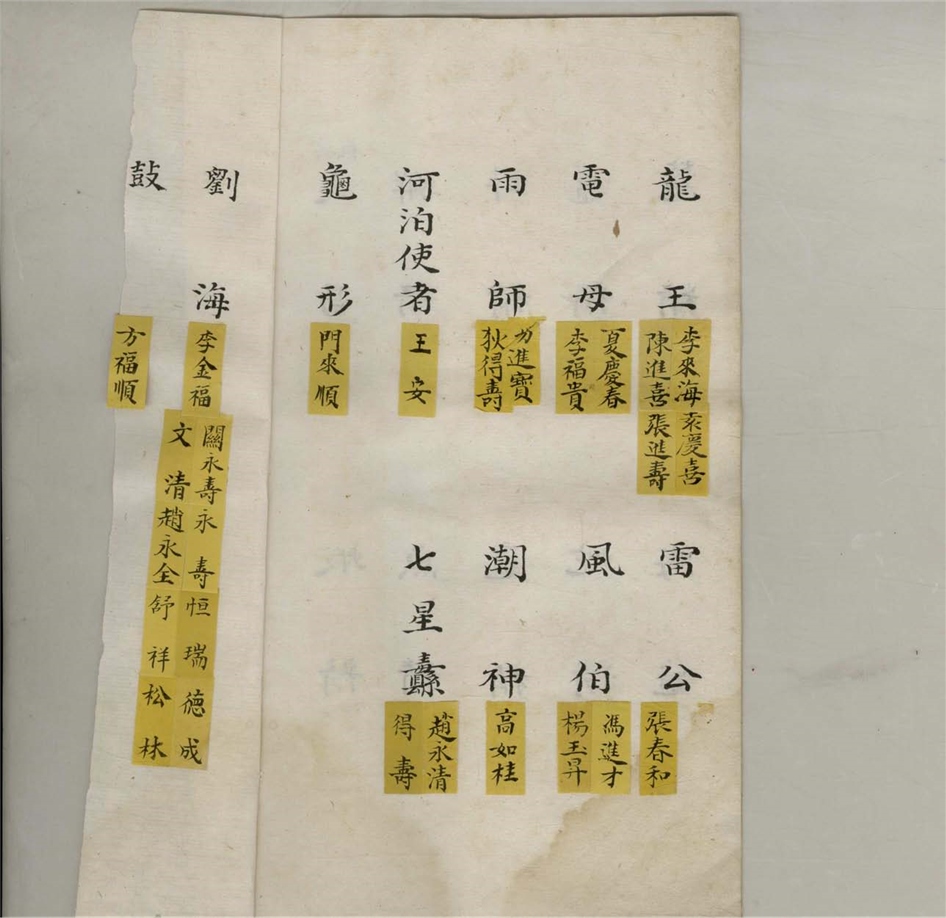 龍王
李來海
陳進喜
袁慶喜
張進壽
雷公
張春和
電母
夏慶春
李福貴
風伯
馮進才
楊玉昇
雨師
方進寶
狄得壽
潮神
高如桂
河泊使者
王安
七星纛
趙永清
得壽
龜形
門來順
劉海
李金福
關永壽
文清
永壽
趙永全
恒瑞
舒祥
德成
松林
鼓
方福順